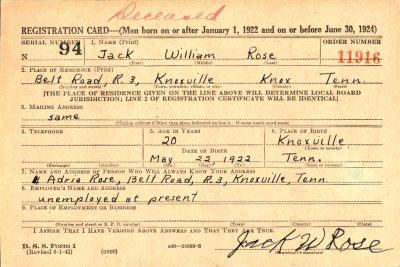 Deceased
REGISTRATION CARD—(Men born on or after January 1, 1922 and on or before June 30, 1924)
SERIAL NUMBER 1. NAME (Print) ORDER NUMBER
N 94 Jack William Rose 11916
(First) (Middle) (Last)
2. PLACE OF RESIDENCE (Print)
Belt Road, R.3, Knoxville Knox Tenn.
(Number and street) (Town, township, village, or city) (County) (State)
[THE PLACE OF RESIDENCE GIVEN ON THE LINE ABOVE WILL DETERMINE LOCAL BOARD
JURISDICTION; LINE 2 OF REGISTRATION CERTIFICATE WILL BE IDENTICAL]
3. MAILING ADDRESS
same
(Mailing address if other than place indicated on line 2. If same insert word same)
4. TELEPHONE 5. AGE IN YEARS 6. PLACE OF BIRTH
20 Knoxville
DATE OF BIRTH (Town or county)
May 22, 1922 Tenn.
(Exchange) (Number) (Mo.) (Day) (Yr.) (State or country)
7. NAME AND ADDRESS OF PERSON WHO WILL ALWAYS KNOW YOUR ADDRESS
Adria Rose, Bell Road, R.3, Knoxville, Tenn.
8. EMPLOYER'S NAME AND ADDRESS
unemployed at present
9. PLACE OF EMPLOYMENT OR BUSINESS
(Number and street or R. F. D. number) (Town) (County) (State)
I AFFIRM THAT I HAVE VERIFIED ABOVE ANSWERS AND THAT THEY ARE TRUE.
D. S. S. Form 1
(Revised 6-1-42) (over) Jack W Rose